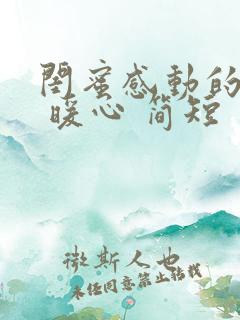 闺蜜感動的
暖心 简短
微斯人也
未经同意禁止转载